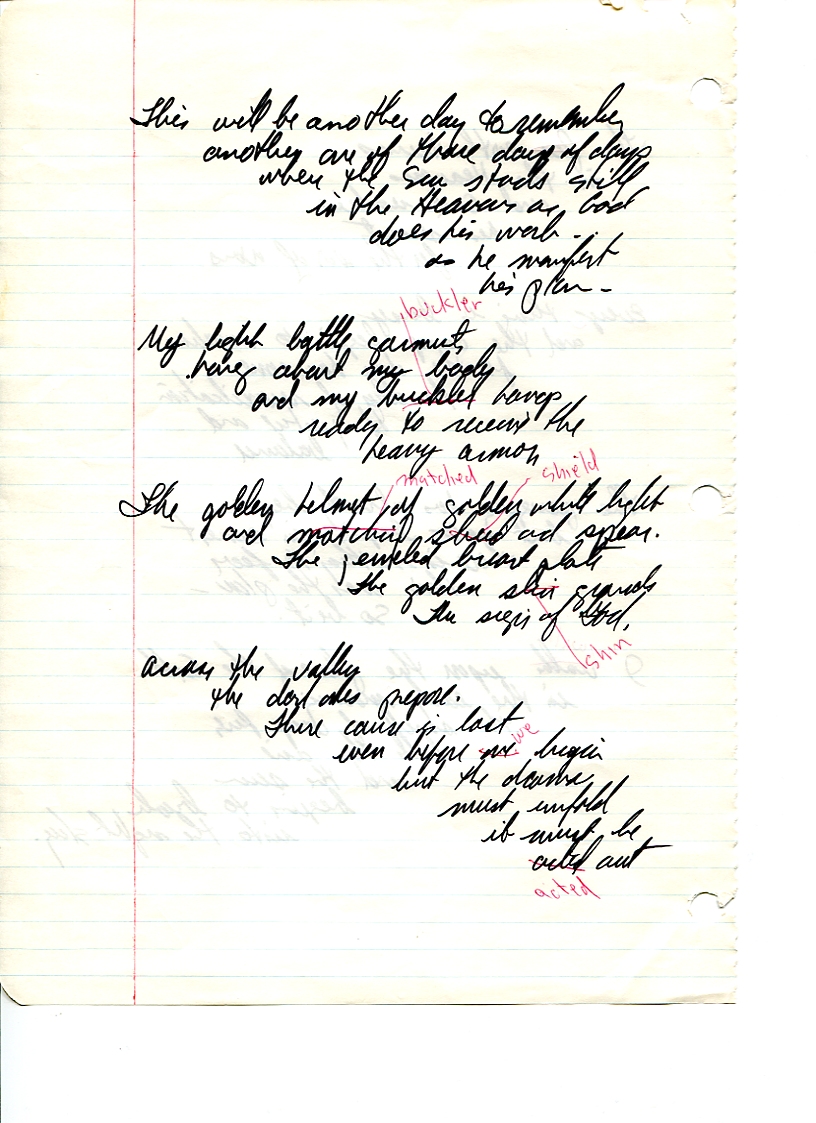 This will be another day to remember
another one of those days of days
when the Sun stads still
in the Heavens as God
does his work -
as he manifest
his plan -
buckler
My light battle garments,
hang about my body
and my buckled hangs
ready to receive the
heavy armor
matched
shield
The golden helmet of golden white light
and matched shield ad spear.
The jeweled breast plate
The golden shin guards
The sign of God.
shin
across the valley
the dark ones prepare.
There cause is lost
we
even before we begin
but the drama
must unfold
it must be
acted out
acted